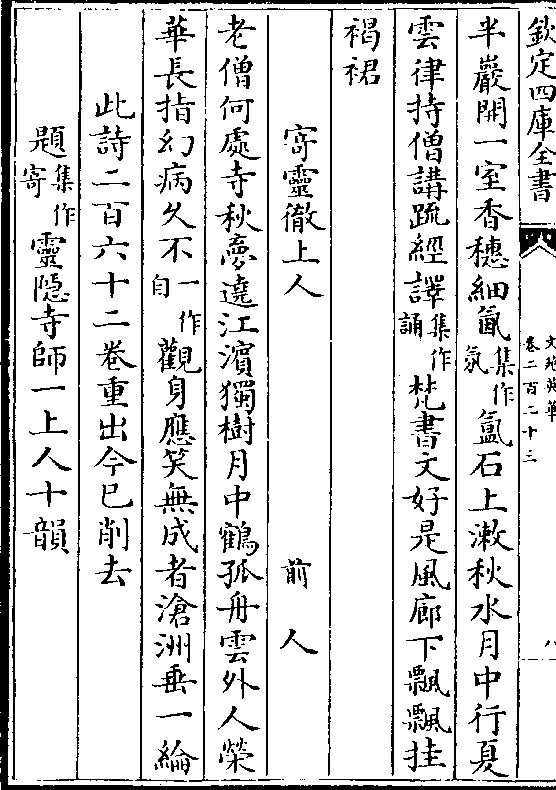 欽定四庫全書
文苑英華
卷二百二十三
八
半巖開一室香穗細氤集作氛氳石上漱秋水月中行夏
雲律持僧講䟽經譯集作誦梵書文好是風廊下飄飄挂
褐裙
寄靈徹上人 前人
老僧何處寺秋夢遶江濱獨樹月中鶴孤舟雲外人榮
華長指幻病久不一作自觀身應笑無成者滄洲垂一綸
此詩二百六十二卷重出今已削去
題集作寄靈隱寺師一上人十韻